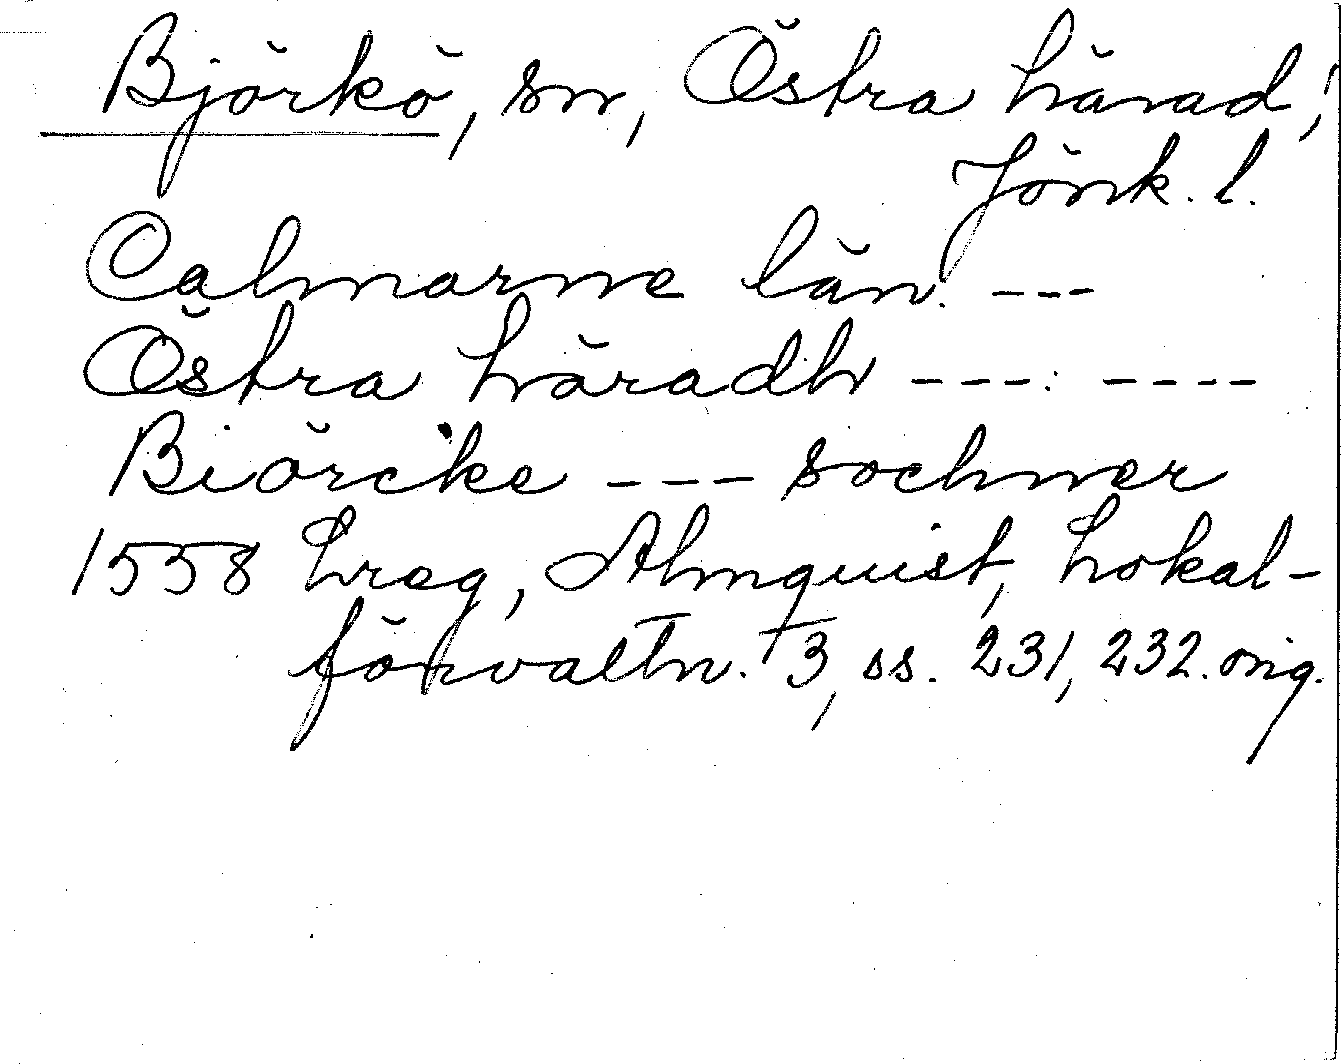 Björkö, sn, Östra härad,
Jönk. l.
Calmarne län. ---
Östra häradh ---: ----
Biörcke --- sochner
1558 hreg, Almquist, Lokal-
förvaltn. T3, ss. 231, 232. orig.